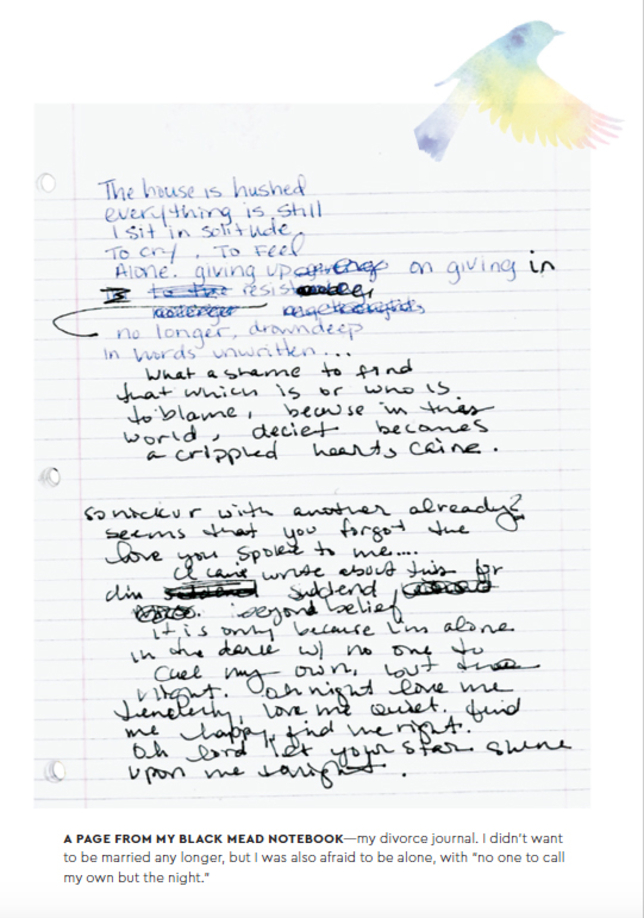 The house is hushed
everything is still
I sit in solitude.
To cry. To Feel
Alone. giving up on giving in
resist
no longer, drown deep
In words unwritten...
What a shame to find
that which is or who is
to blame, because in this
world, deciet becomes
a crippled hearts caine.
so with another already?
seems that you forgot the
love you spoke to me....
I can't write about this for
suddend
beyond belief
it is only because I'm alone
in the dark w/ no one to
call my own, but the
night. Oh night love me
tenderly, love me quiet. find
me happy, find me right.
Oh lord let your star shine
upon me tonight.
A PAGE FROM MY BLACK MEAD NOTEBOOK—my divorce journal. I didn't want
to be married any longer, but I was also afraid to be alone, with "no one to call
my own but the night."